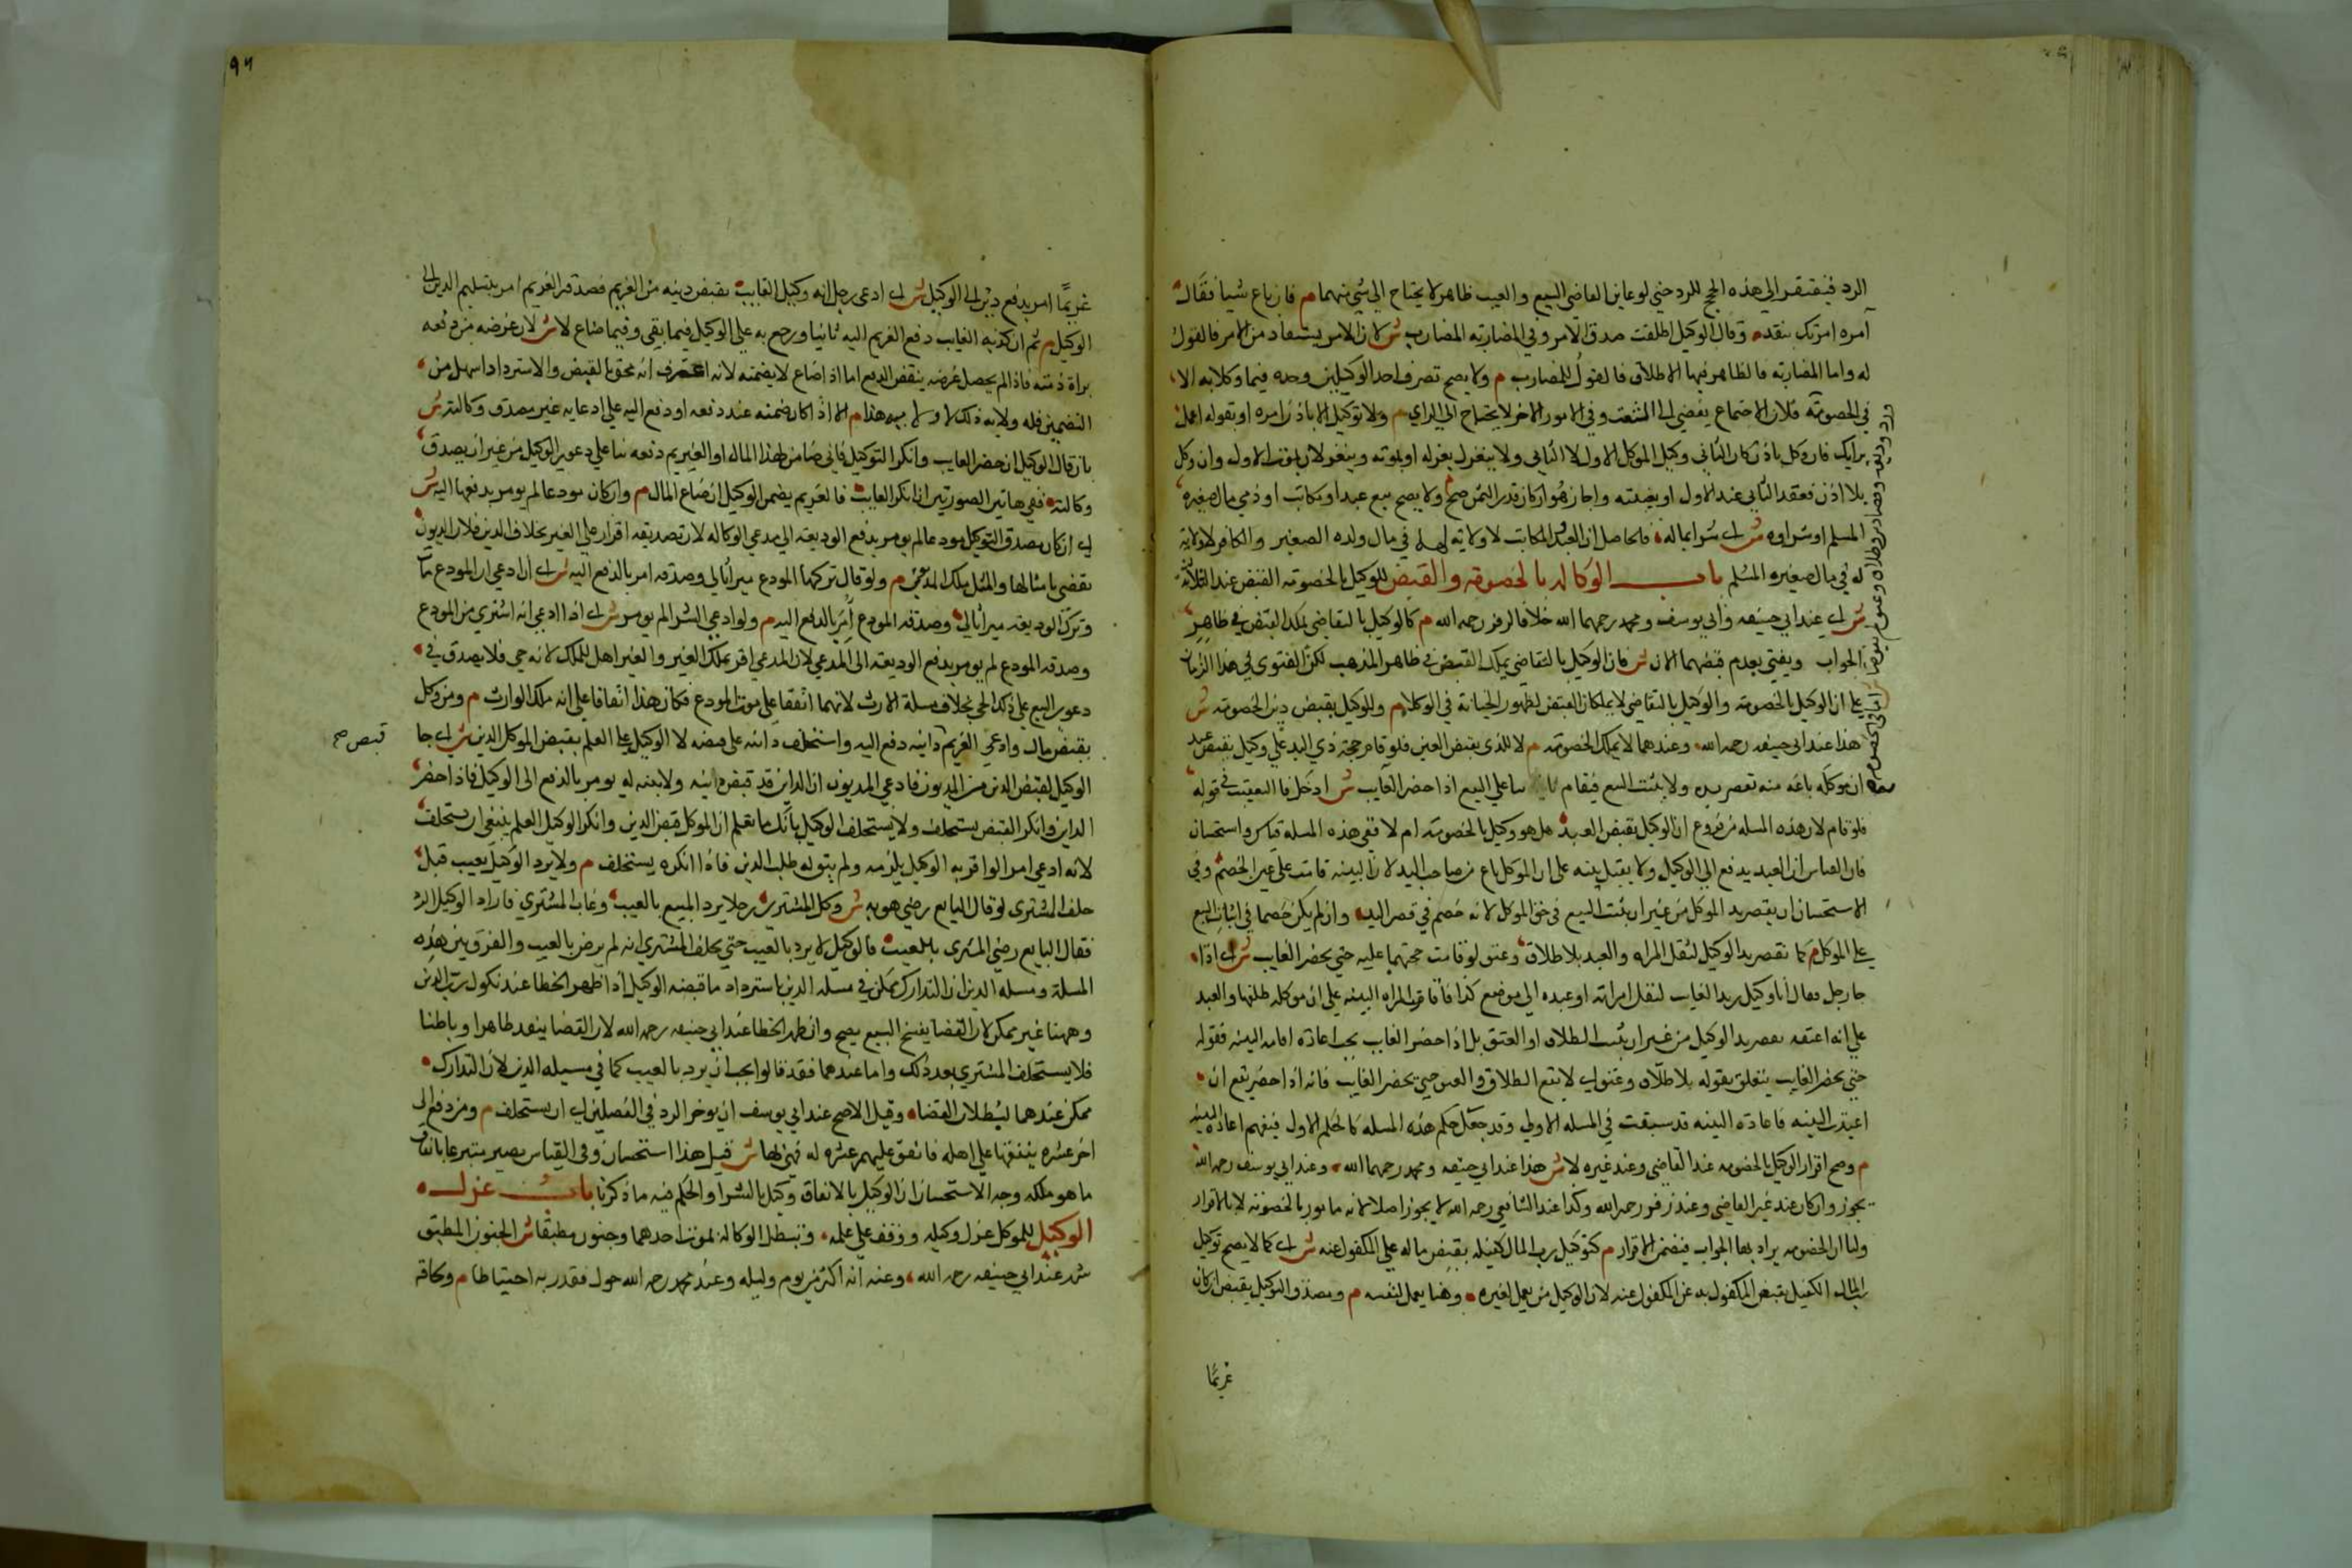 الرد فيفتقر الي هذه الحجج للرد حتي لو عاين القاضي البيع والعيب ظاهر لا يحتاج الي شي منهما م فان باع شيا فقال
آمره امرتك بنقد وقال الوكيل اطلقت صدق الامر وفي المضاربه المضارب ش لان الامر يستفاد من الامر فالقول
له واما المضاربه فالظاهر فيها الاطلاق فالقول للمضارب م ولا يصح تصرف احد الوكيلين وحده فيما وكلا به الا
في الخصومة فلان الاجتماع يفضي الي الشغب وفي الامور الاخر لا يحتاج الي الراي م ولا توكيل الا باذن امره او بقوله اعمل
برايك فان وكل باذن كان الثاني وكيل الموكل الاول لا الثاني ولا ينعزل بعزله او بموته وينعزلان بموت الاول وان وكل
بلا اذن فعقد الثاني عند الاول او بغيبته واجاز هو او كان قدر الثمن صح ولا يصح بيع عبد او مكاتب او ذمي مال صغيره
المسلم او شراوه ش اي شرا بماله فالحاصل ان العبد والمكاتب لا ولاية لهما في مال ولده الصغير والكافر لا ولاية
له في مال صغيره المسلم باب الوكالة بالخصومة والقبض للوكيل بالخصومة القبض عند الثلاثة
ش اي عند ابي حنيفه وابي يوسف ومحمد رحمهما الله خلافا لزفر رحمه الله م كالوكيل بالتقاضي يملك القبض في ظاهر
الجواب ويفتي بعدم قبضهما الان ش فان الوكيل بالتقاضي يملك القبض في ظاهر المذهب لكن الفتوي في هذا الزمان
علي ان الوكيل بالخصومة والوكيل بالتقاضي لا يملكان القبض لظهور الخيانة في الوكلا م وللوكيل بقبض دين الخصومة ش
هذا عند ابي حنيفه رحمه الله وعندهما لا يملك الخصومه م لا للذي بقبض العين فلو قام حجة ذي اليد علي وكيل بقبض عبد
ان موكله باعه منه تقصر يده ولا يثبت البيع فيقام ثانيا علي البيع اذا حضر الغايب ش ادخل فا التعقيب في قوله
فلو قام لان هذه المسله من فروع ان الوكيل بقبض العبد هل هو وكيل بالخصومة ام لا ففي هذه المسله قياس واستحسان
فان القياس ان العبد يدفع الي الوكيل ولا يقبل بينته علي ان الموكل باع من صاحب اليد لان البينه قامت علي غير الخصم وفي
الاستحسان ان يقصر يد الوكيل من غير ان يثبت البيع في حق الموكل لانه خصم في قصر اليد وان لم يكن خصما في اثبات البيع
علي الموكل م كما تقصر يد الوكيل لنقل المراه والعبد بلا طلاق وعتق لو قامت حجتهما عليه حتي يحضر الغايب ش اي اذا
جا رجل فقال انا وكيل زيد الغايب لنقل امراته او عبده الي موضع كذا فاقامت المراه البينه علي ان موكله طلقها والعبد
علي انه اعتقه يقصر يد الوكيل من غير ان يثبت الطلاق او العتق بل اذا حضر الغايب يجب اعادة اقامه البينه فقوله
حتي يحضر الغايب يتعلق بقوله بلا طلاق وعتق اي لا يقع الطلاق والعتق حتي يحضر الغايب فانه اذا حضر يقع ان
اعيدت البينه فاعادة البينه قد سبقت في المسله الاولي وقد جعل حكم هذه المسله كالحكم الاول فيفهم اعادة البينه
م وصح اقرار الوكيل بالخصومه عند القاضي وعند غيره لا ش هذا عند ابي حنيفه ومحمد رحمهما الله وعند ابي يوسف رحمه الله
يجوز وان كان عند غير القاضي وعند زفر رحمه الله وكذا عند الشافعي رحمه الله لا يجوز اصلا لانه مامور بالخصومة لا بالاقرار
ولنا ان الخصومه يراد بها الجواب فيضمن الاقرار م كتوكيل رب المال كفيله بقبض ماله علي المكفول عنه ش اي كما لا يصح توكيل
الكفيل بقبض المكفول به عن المكفول عنه لان الوكيل من يعمل لغيره وهنا يعمل لنفسه م ومصدق التوكيل بقبض ان كان
غريمًا
٩٦
غريمًا امر بدفع دين الي الوكيل ش اي ادعي رجل انه وكيل الغايب بقبض دينه من الغريم فصدقه الغريم امر بتسليم الدين الي
الوكيل م ثم ان كذبه الغايب دفع الغريم اليه ثانيا ورجع به علي الوكيل فيما بقي وفيما ضاع لا ش لان غرضه من دفعه
براة ذمته فاذا لم يحصل غرضه ينقض الدفع اما اذا ضاع لا يضمنه لانه اعترف انه محق بالقبض والاسترداد اسهل من
التضمين فله ولاية ذلك لا ولاية هذا م الا اذا كان ضمنه عند دفعه او دفع اليه علي ادعايه غير مصدق وكالته ش
بان قال الوكيل ان حضر الغايب وانكر التوكيل فاني ضامن لهذا المال او الغريم دفعه بنا علي دعوي الوكيل من غير ان يصدق
وكالته ففي هاتين الصورتين ان انكر الغايب فالغريم يضمن الوكيل ان ضاع المال م وان كان مودعا لم يومر بدفعها اليه ش
اي ان كان مصدق التوكيل مودعا لم يومر بدفع الوديعة الي مدعي الوكالة لان تصديقه اقرار علي الغير بخلاف الدين فلان الديون
تقضي بامثالها والمثل ملك المدعي م ولو قال تركها المودع ميراثا لي وصدقه امر بالدفع اليه ش اي ان ادعي ان المودع مات
وترك الوديعه ميراثا لي وصدقه المودع امر بالدفع اليه م ولو ادعي الشرا لم يومر ش اي اذا ادعي انه اشتري من المودع
وصدقه المودع لم يومر بدفع الوديعه الي المدعي لان المدعي اقر بملك الغير والغير اهل للملك لانه حي فلا يصدق في
دعوي البيع علي ذلك الحي بخلاف مسلة الارث لانهما اتفقا علي موت المودع فكان هذا اتفاقا علي انه ملك الوارث م ومن وكل
بقبض مال وادعي الغريم دائنه دفع اليه واستحلف دائنه علي قبضه لا الوكيل علي العلم بقبض الموكل الدين ش اي جا
قبض صح
الوكيل لقبض الدين من المديون فادعي المديون ان الدائن قد قبض دينه ولا بينه له يومر بالدفع الي الوكيل فاذا حضر
الدائن وانكر القبض يستحلف ولا يستحلف الوكيل بانك ما تعلم ان الموكل قبض الدين وانكر الوكيل العلم ينبغي ان يستحلف
لانه ادعي امرا لو اقر به الوكيل يلزمه ولم يبق له طلب الدين فاذا انكره يستحلف م ولا يرد الوكيل بعيب قبل
حلف المشتري لو قال البايع رضي هو به ش وكل المشتري رجلا يرد المبيع بالعيب وغاب المشتري فاراد الوكيل الرد
فقال البايع رضي المشتري بالعيب فالوكيل لا يرد بالعيب حتي يحلف المشتري انه لم يرض بالعيب والفرق بين هذه
المسلة ومسله الدين ان التدارك ممكن في مسله الدين باسترداد ما قبضه الوكيل اذا ظهر الخطا عند نكول رب الدين
وههنا غير ممكن لان القضا بفسخ البيع يصح وان ظهر الخطا عند ابي حنيفه رحمه الله لان القضا ينفد ظاهرا وباطنا
فلا يستحلف المشتري بعد ذلك واما عندهما فقد قالوا يجب ان يرد بالعيب كما في مسيله الدين لان التدارك
ممكن عندهما لبطلان القضا وقيل الاصح عند ابي يوسف ان يوخر الرد في الفصلين الي ان يستحلف م ومن دفع الي
اخر عشره ينفقها علي اهله فانفق عليهم عشره له فهي بها ش قيل هذا استحسان وفي القياس يصير متبرعا بانفاق
ما هو ملكه وجه الاستحسان ان الوكيل بالانفاق وكيل بالشرا والحكم فيه ما ذكرنا باب عزل
الوكيل للموكل عزل وكيله ووقف علي علمه وتبطل الوكالة بموت احدهما وجنون مطبقا ش الجنون المطبق
شهر عند ابي حنيفه رحمه الله وعنه انه اكثر من يوم وليله وعند محمد رحمه الله حول فقدر به احتياطا م ولحاقه